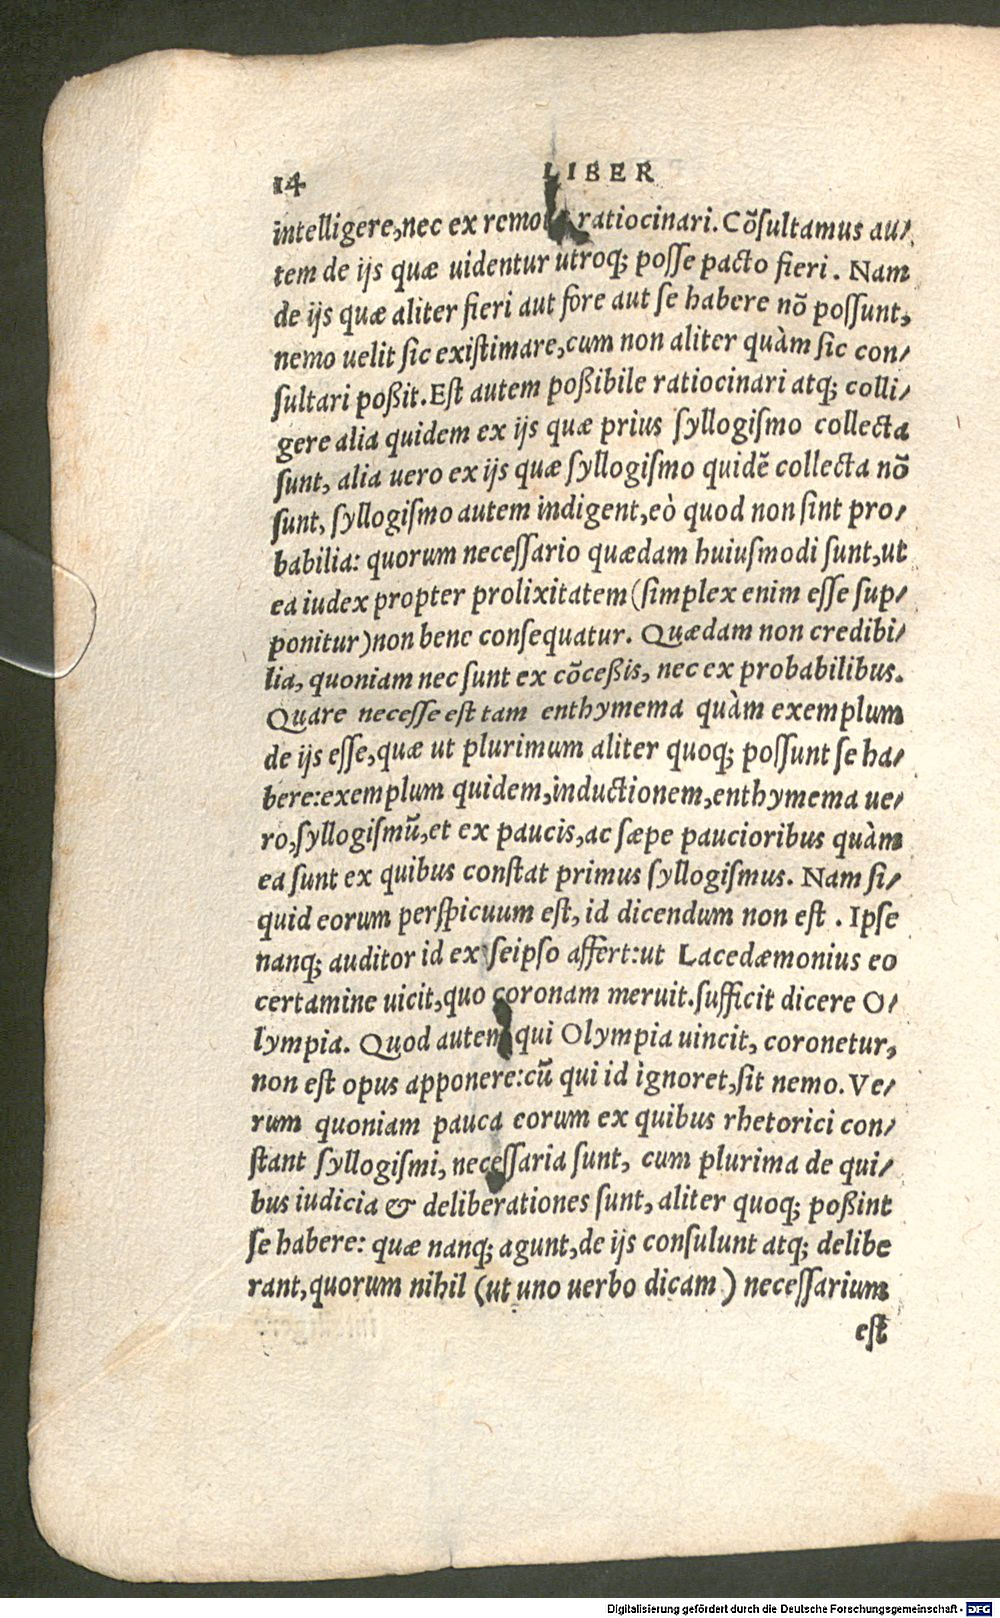 14 LIBER
intelligere, nec ex remot ratiocinari. Cōsultamus au/
tem de ijs quæ uidentur utroq; posse pacto fieri. Nam
de ijs quæ aliter fieri aut fore aut se habere nō possunt,
nemo uelit sic existimare, cum non aliter quàm sic con/
sultari poßit. Est autem poßibile ratiocinari atq; colli/
gere alia quidem ex ijs quæ prius syllogismo collecta
sunt, alia uero ex ijs quæ syllogismo quidē collecta nō
sunt, syllogismo autem indigent, eò quod non sint pro/
babilia: quorum necessario quædam huiusmodi sunt, ut
ea iudex propter prolixitatem (simplex enim esse sup/
ponitur) non bene consequatur. Quædam non credibi/
lia, quoniam nec sunt ex cōceßis, nec ex probabilibus.
Quare necesse est tam enthymema quàm exemplum
de ijs esse, quæ ut plurimum aliter quoq; possunt se ha/
bere: exemplum quidem, inductionem, enthymema ue/
ro, syllogismū, et ex paucis, ac sæpe paucioribus quàm
ea sunt ex quibus constat primus syllogismus. Nam si/
quid eorum perspicuum est, id dicendum non est. Ipse
nanq; auditor id ex seipso affert: ut Lacedæmonius eo
certamine uicit, quo coronam meruit. sufficit dicere O/
lympia. Quod autem qui Olympia uincit, coronetur,
non est opus apponere: cū qui id ignoret, sit nemo. Ve/
rum quoniam pauca eorum ex quibus rhetorici con/
stant syllogismi, necessaria sunt, cum plurima de qui/
bus iudicia & deliberationes sunt, aliter quoq; poßint
se habere: quæ nanq; agunt, de ijs consulunt atq; delibe
rant, quorum nihil (ut uno uerbo dicam) necessarium
est
Digitalisierung gefördert durch die Deutsche Forschungsgemeinschaft - DFG